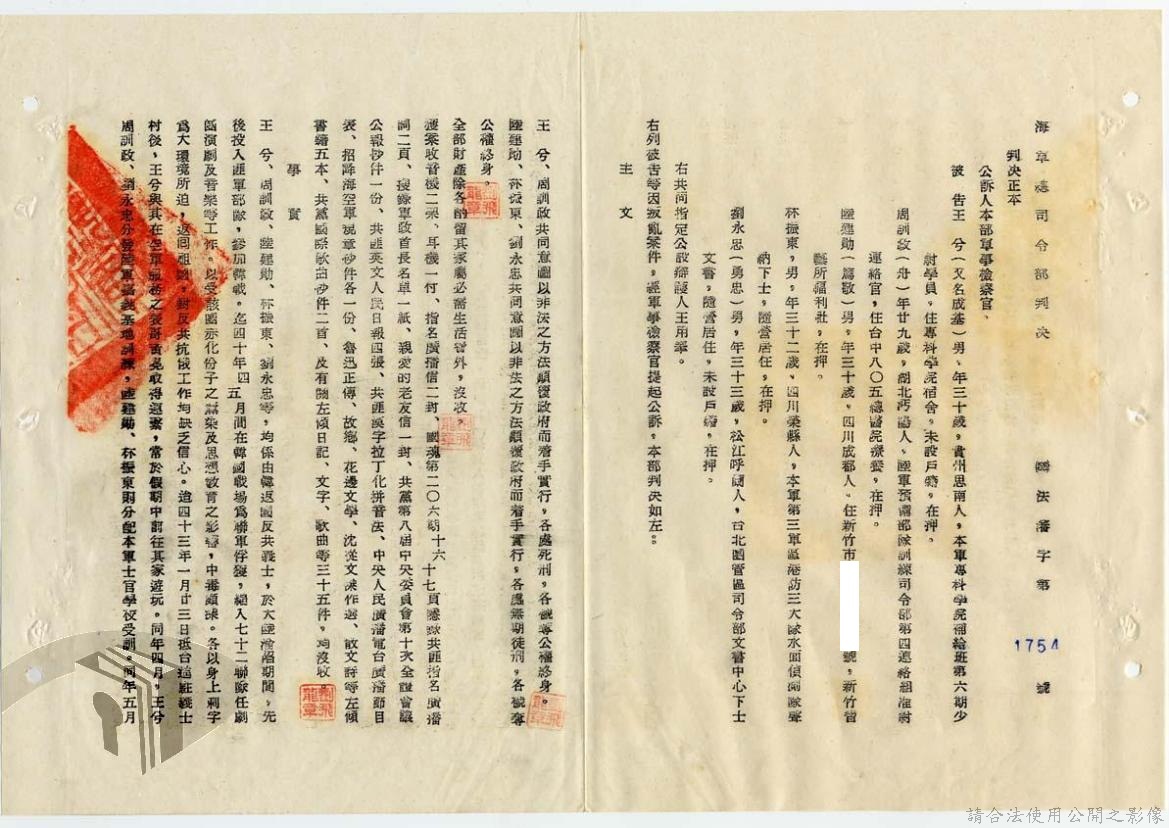 海軍總司令部判決　　　國法審字第1754號
判決正本
公訴人本部軍事檢察官。
被告王兮(又名成基)男，年三十歲，貴州思南人，本軍專科學院補給班第六期少
尉學員，住專科學院宿舍，未設戶籍，在押。
周訓政(舟)年廿九歲，湖北沔陽人，陸軍預備部隊訓練司令部第四連絡組准尉
連絡官，住台中八〇五總醫院療養，在押。
陸建勛(篤敬)男，年三十歲，四川成都人，住新竹市　號，新竹
所福利社，在押。
林振東，男，年三十二歲，四川榮縣人，本軍第三軍區港防三大隊水面偵測隊聲
納下士，隨營居住，在押。
劉永忠(勇忠)男，年三十三歲，松江呼蘭人，台北團管區司令部文書中心下士
文書，隨營居住，未設戶籍，在押。
右共同指定公設辯護人王用
右列被告等因叛亂案件，經軍事檢察官提起公訴，本部判決如左：
主文
王兮、周訓政共同意圖以非法之方法顛覆政府而着手實行，各處死刑，各褫奪公權終身。
陸建勛、林振東、劉永忠共同意圖以非法之方法顛覆政府而着手實行，各處無期徒刑，各褫奪
公權終身。
全部財產除各酌留其家屬必需生活費外，沒收。
獲案收音機二架、耳機一付、指名廣播信二封、國魂第二〇六期十六十七頁懸錄共匪指名廣播
詞二頁、搜錄軍政首長名單一紙、親愛的老友信一封、共黨第八屆中央委員會第十次全體會議
公報抄件一份、共匪英文人民日報四張、共匪漢字拉丁化拼音法、中央人民廣播電台廣播節目
表、招降海空軍規章抄件各一份、魯迅正傳、故鄉、花邊文學、沈從文傑作選、散文詩等左傾
書籍五本、共黨國際歌曲抄件二首、及有關左傾日記、文字、歌曲等三十五件，均沒收。
事實
王兮、周訓政、陸建勛、林振東、劉永忠等，均係由韓返國反共義士，於大陸淪陷期間，先
後投入匪軍部隊，參加韓戰。迄四十年四五月間在韓國戰場為聯軍俘獲，編入七十二聯隊任劇
團演劇及音樂等工作。以受該團赤化份子之薰染及思想教育之影響，中毒頗深。各以身上刺字
為大環境所迫，返回祖國，對反共抗俄工作均缺乏信心。迨四十三年一月廿三日抵台進駐義士
村後，王兮與其在空軍服務之表哥黃冕取得連絡，常於假期中前往其家遊玩。同年四月，王兮
周訓政、劉永忠分發陸軍嘉義基地訓練，陸建勛、林振東則分配本軍士官學校受訓。同年五月
劉飛龍章
劉飛龍章
劉飛龍章
劉飛龍章
請合法使用公開之影像